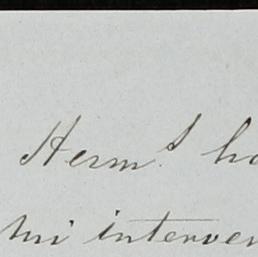 Herm.s ha
mi interven